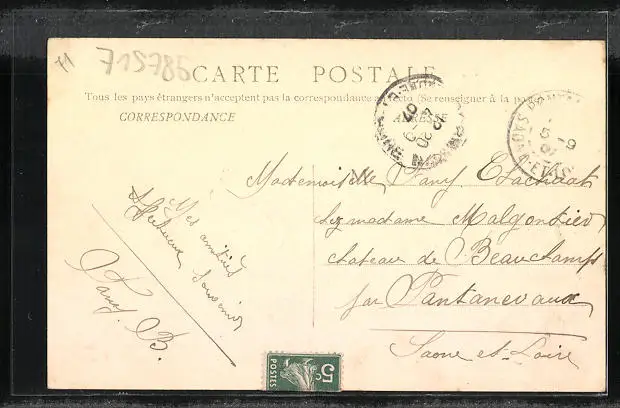 71
715785
CARTE POSTALE
Tous les pays étrangers n'acceptent pas la correspondance au recto (Se renseigner à la poste)
CORRESPONDANCE
ADRESSE
Mademoiselle Fany
chez madame Malgontier
chateau de Beauchamps
par Pantanevaux
Saone et Loire
Mes amitiés
Souvenir
Fany. B.
POSTES 5c